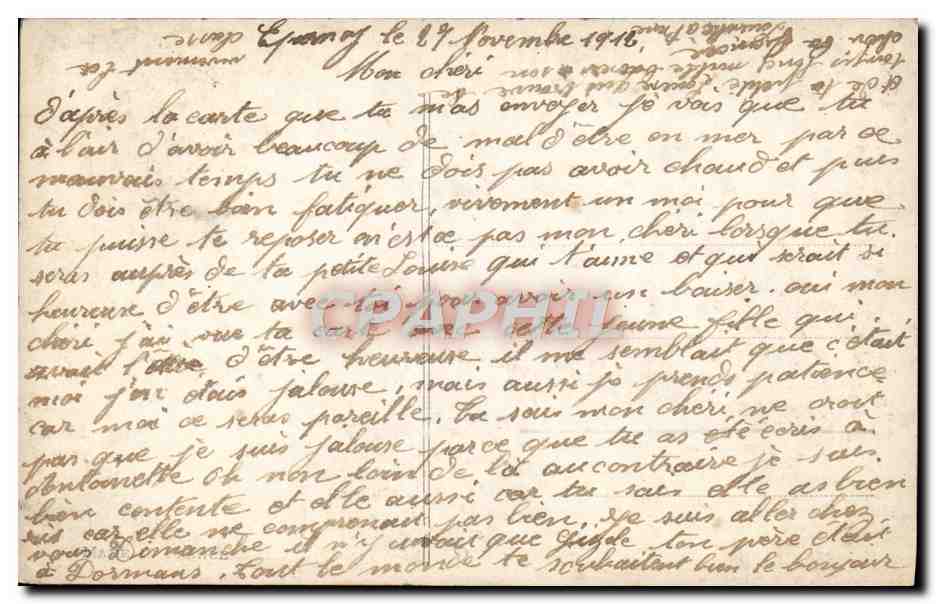 Epernay le 27 Novembre 1912
Mon chéri
d'après la carte que tu m'as envoyer je vois que tu
à l'air d'avoir beaucoup de mal d'être en mer par ce
mauvais temps tu ne dois pas avoir chaud et puis
tu dois être bien fatiguer, vivement un moi pour que
tu puisse te reposer n'est ce pas mon chéri lorsque tu
seras auprès de ta petite Louise qui t'aime et qui serait si
heureuse d'être avec toi pour avoir un baiser. oui mon
chéri j'ai vue ta carte avec cette jeune fille qui
avait l'air d'être heureuse il me semblait que c'était
moi j'en étais jalouse, mais aussi je prends patience
car moi ce seras pareille. Tu sais mon chéri ne croit
pas que je suis jalouse parce que tu as écris à
Antoinette oh non loin de là au contraire je suis
bien contente et elle aussi car tu sais elle as bien
ris car elle ne comprenait pas bien. Je suis aller chez
vous Dimanche il n'y avait que ton père était
à Dormans. Tout le monde te souhaitent bien le bonjour
et de ta petite Louise qui trouve le
temps long mille baisers
CPAPHIL